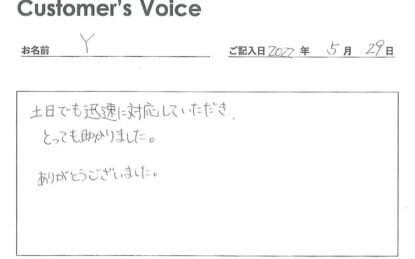 Customer's Voice
お名前 Y ご記入日 2022 年 5 月 29 日
土日でも迅速に対応していただき、
とっても助かりました。
ありがとうございました。